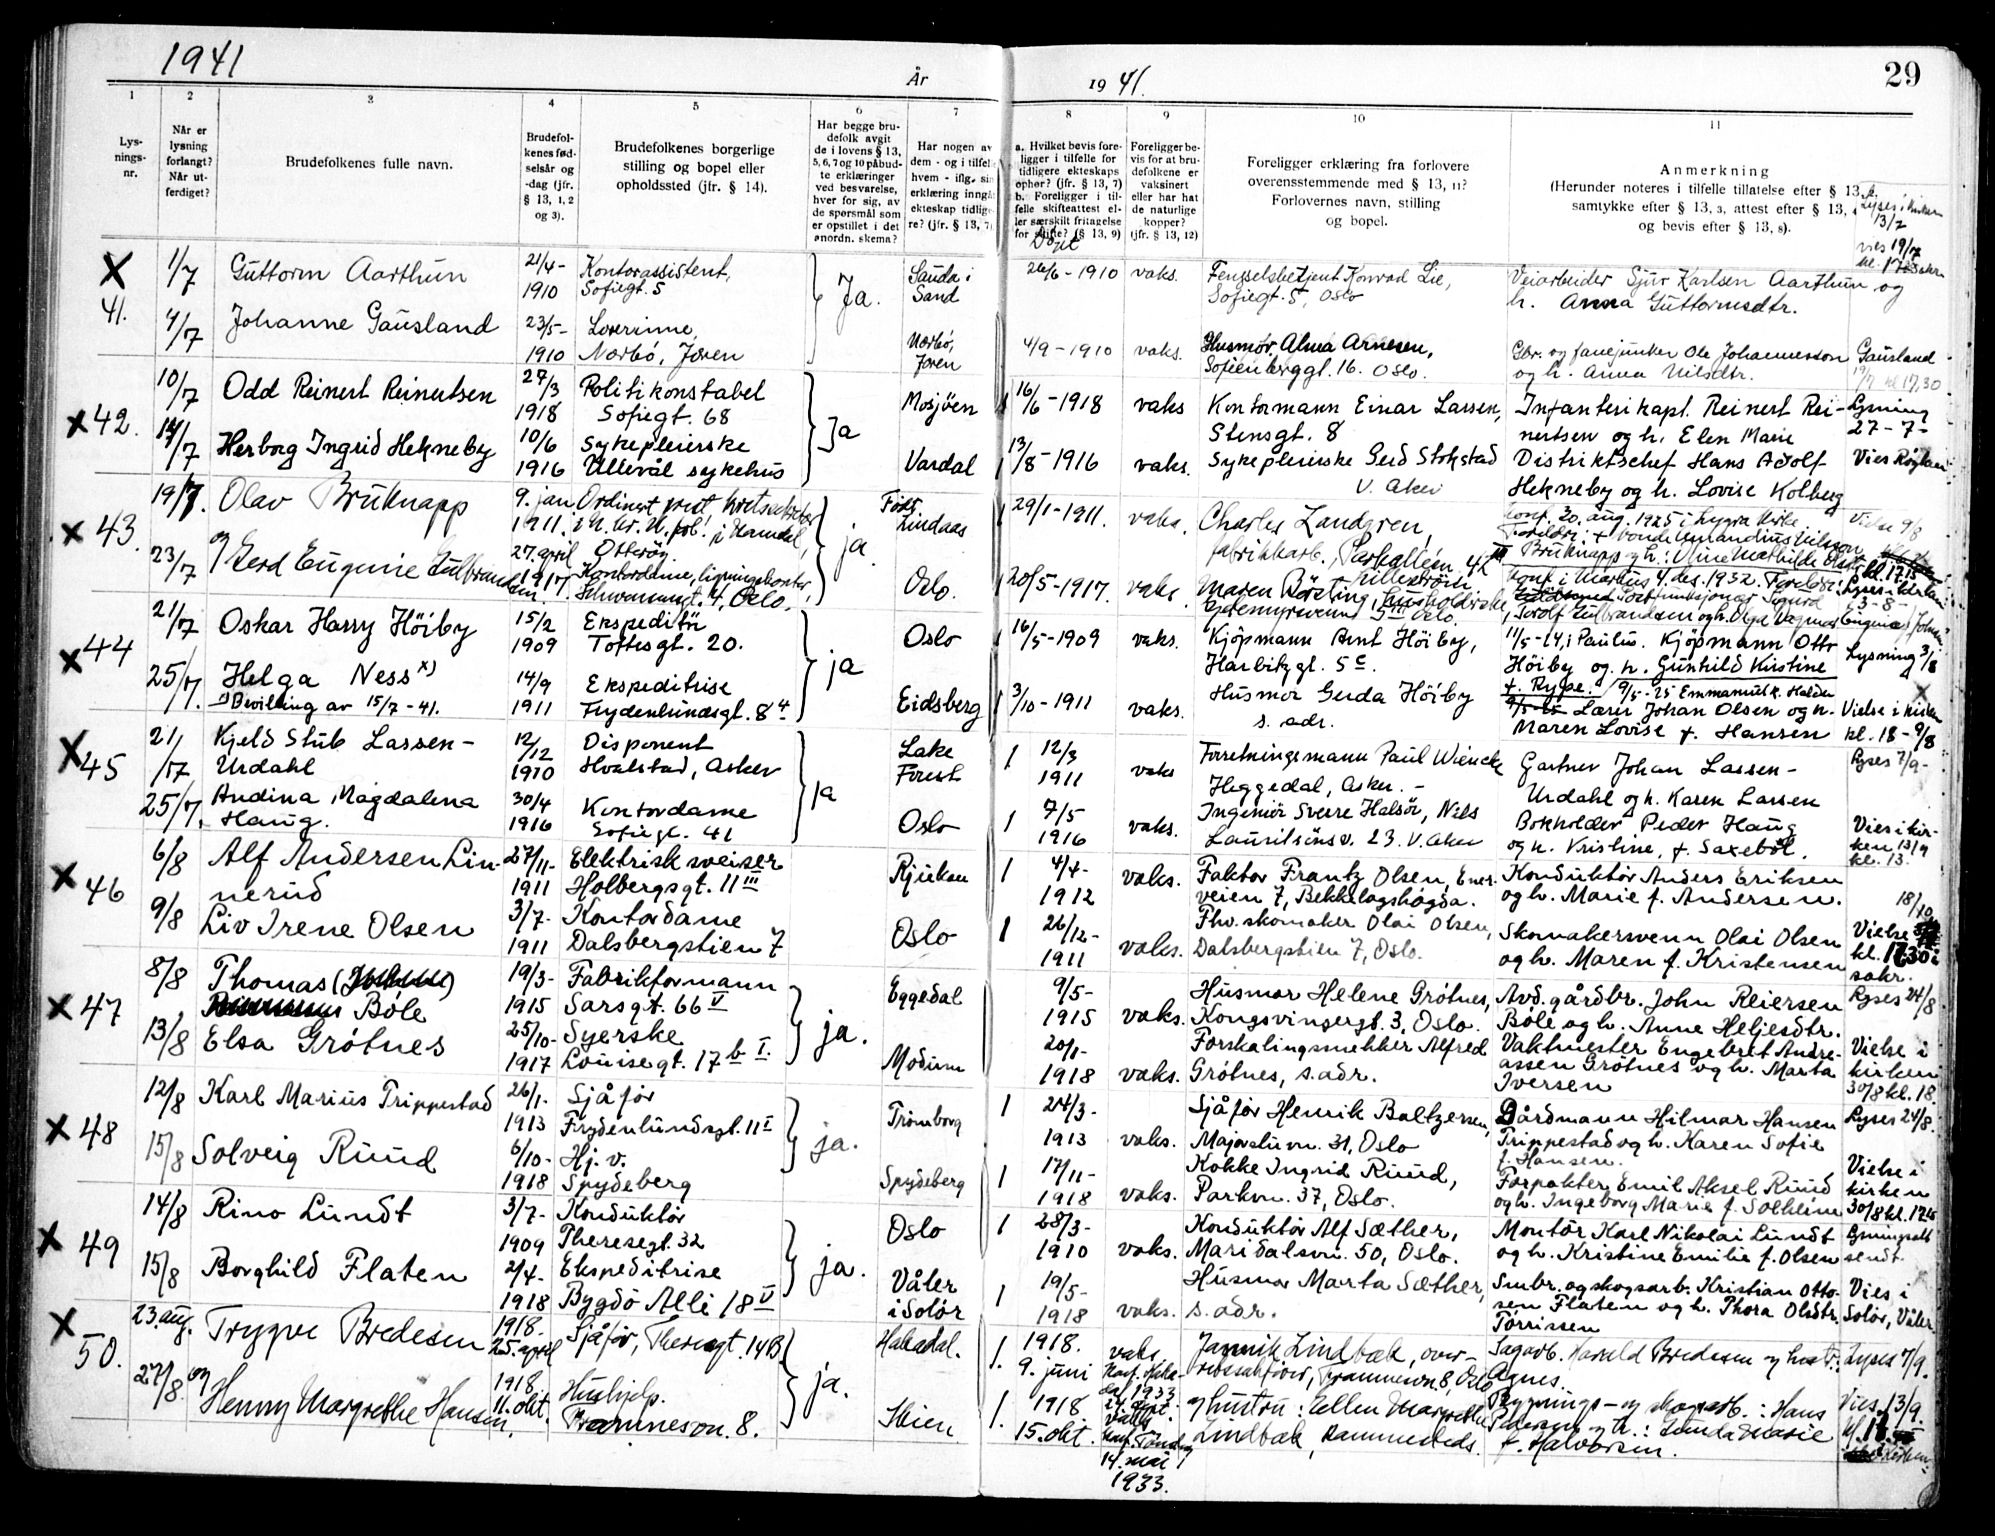 1941
År
19 41.
29
1
2
3
4
5
6
7
8
9
10
11
Lys-
nings-
nr.
Når er
lysning
forlangt?
Når ut-
ferdiget?
Brudefolkenes fulle navn.
Brudefol-
kenes fød-
selsår og
-dag (jfr.
§ 13, 1, 2
og 3).
Brudefolkenes borgerlige
stilling og bopel eller
opholdssted (jfr. § 14).
Har begge bru-
defolk avgit
de i lovens § 13,
5, 6, 7 og 10 påbud-
te erklæringer
ved besvarelse,
hver for sig, av
de spørsmål som
er opstillet i det
anordn. skema?
Har nogen av
dem - og i tilfel
hvem - iflg. sin
erklæring inngå
ekteskap tidlig
re? (jfr. § 13, 7)
a. Hvilket bevis fore-
ligger i tilfelle for
tidligere ekteskaps
ophør? (jfr. § 13, 7)
b. Foreligger i til-
felle skifteattest el-
ler særskilt fritagelse
for skifte? (§ 13, 9)
Foreligger be-
vis for at bru-
defolkene er
vaksinert
eller har hat
de naturlige
kopper?
(jfr. § 13, 12)
Foreligger erklæring fra forlovere
overensstemmende med § 13, 11?
Forlovernes navn, stilling
og bopel.
Anmerkning
(Herunder noteres i tilfelle tillatelse efter § 13,
samtykke efter § 13, 3, attest efter § 13,
og bevis efter § 13, 8).
Lyses i kirken
13/7
vies 19/7
X
41.
1/7
4/7
Guttorm Aarthun
Johanne Gausland
21/4-
1910
23/5-
1910
Kontorassistent,
Sofiegt. 5
Lærerinne,
Nærbø, Jæren
Ja.
Sauda i
Sand
Nærbø,
Jæren
Døpt
26/6 - 1910
4/9 - 1910
vaks.
vaks.
Fengselsbetjent Konrad Lie,
Sofiegt. 5, Oslo
Husmor Alma Arnesen,
Sofienberggt. 16. Oslo.
Veiarbeider Sjur Karlsen Aarthun og
h. Anna Guttormsdtr.
Gbr. og fanejunker Ole Johannesson Gausland
og h. Anna Nilsdtr.
19/7 kl 17,30
X 42.
10/7
14/7
Odd Reinert Reinertsen
Herborg Ingrid Hekneby
27/3
1918
10/6
1916
Politikonstabel
Sofiegt. 68
Sykepleierske
Ullevål sykehus
Ja
Mosjöen
Vardal
16/6 - 1918
13/8 - 1916
vaks
vaks.
Kontormann Einar Larsen,
Stensgt. 8
Sykepleierske Gerd Stokstad
V. Aker
Infanterikapt. Reinert Rei-
nertsen og h. Elen Marie
Distriktschef Hans Adolf
Hekneby og h. Lovise Kolberg
Lysning
27 - 7 -
X 43.
19/7.
23/7
Olav Bruknapp
og Gerd Eugenie Gulbrandsen
9. jan
1911.
27. april
1917.
Ordinert prest, kretssekretær
Otterøy.
Kontordame, ligningskontor,
Schwensensgt. 4, Oslo.
ja.
Lindaas
Oslo.
29/1-1911.
20/5-1917.
vaks.
vaks.
Charles Landgren,
fabrikkarb.
Maren Børsting, husholdnske,
Oslo.
Konf. 30. aug. 1925 i Lygra kirke.
Bruknapp og h.
Konf. i Markus 4. des. 1932. Foreldre:
Vielse 9/8
kl. 17 15
3 - 8 -
X 44
21/7
25/7.
Oskar Harry Höiby
Helga Ness x)
x) Bevilling av 15/7 - 41.
15/2
1909
14/9
1911
Ekspeditör
Toftesgt. 20.
Ekspeditrise
Frydenlundsgt. 8 4
ja
Oslo
Eidsberg
16/5-1909
3/10-1911
vaks.
vaks.
Kjöpmann Arnt Höiby,
Harbitzgt. 5 c.
Husmor Gerda Höiby
s. adr.
11/5-24, i Paulus. Kjöpmann Otto
Höiby og h. Gunhild Kristine
f. Rype. 9/5-25 Emmanuelk. Halden
Lærer Johan Olsen og h.
Maren Lovise f. Hansen
Lysning 3/8
Vielse i kirken
kl. 18 - 9/8
X 45
21/7
25/7.
Kjeld Stub Lassen-
Urdahl
Andina Magdalena
Haug.
12/12
1910
30/4
1916
Disponent
Hvalstad, Asker
Kontordame
Sofiegt. 41
ja
Lake
Forest
Oslo
12/3
1911
7/5
1916
vaks
vaks.
Forretningsmann Paul Wiencke
Heggedal, Asker. -
Ingeniør Sverre Halsör, Nils
Lauritsöns v. 23. V. Aker
Gartner Johan Lassen-
Urdahl og h. Karen Larsen
Bokholder Peder Haug
og h. Kristine, f. Saxebøl.
Lyses 7/9-
Vies i kir-
ken 13/9
kl. 13.
X 46
6/8
9/8
Alf Andersen Lin-
nerud
Liv Irene Olsen
27/11-
1911
3/7-
1911
Elektrisk sveiser
Holbergsgt. 11 III
Kontordame
Dalsbergstien 7
Rjukan
Oslo
4/4-
1912
26/12-
1911
vaks.
vaks.
Faktor Frantz Olsen, Ener-
veien 7, Bekkelagshøgda.
Fhv. skomaker Olai Olsen,
Dalsbergstien 7, Oslo.
Konduktör Anders Eriksen
og h. Marie f. Andersen.
Skomakersvenn Olai Olsen
og h. Maren f. Kristensen
18/10
Vielse
kl. 17.30 i
sakr.
X 47
8/8
13/8
Thomas
Böle
Elsa Grötnes
19/3-
1915
25/10-
1917
Fabrikformann
Sarsgt. 66 V
Syerske
Louisegt. 17 b I.
ja.
Eggedal
Modum
9/5-
1915
20/1-
1918
vaks.
vaks.
Husmor Helene Grötnes,
Kongsvingergt. 3, Oslo.
Forskalingssnekker Alfred
Grötnes, s. adr.
Avd. gårdbr. John Reiersen
Böle og h. Anne Heljesdtr.
Vaktmester Engebret Andre-
assen Grötnes og h. Marta
Iversen
Lyses 24/8.
Vielse i
kirken
30/8 kl. 18.
X 48
12/8
15/8
Karl Marius Trippestad
Solveig Ruud
26/1.
1913
6/10-
1918
Sjåfør
Frydenlundsgt. 11 I
Hj. v.
Spydeberg
ja.
Trömborg
Spydeberg
24/3-
1913
17/11-
1918
vaks.
vaks.
Sjåför Henrik Baltzersen,
Majorstuvn. 31, Oslo
Kokke Ingrid Ruud,
Parkvn. 37, Oslo.
Gårdmann Hilmar Hansen
Trippestad og h. Karen Sofie
f. Hansen.
Forpakter Emil Aksel Ruud
og h. Ingeborg Marie f. Solheim
Lyses 24/8.
Vielse i
kirken
30/8 kl.
X 49
14/8
15/8
Rino Lundt
Borghild Flaten
3/7-
1909
2/4-
1918
Konduktör
Theresegt. 32
Ekspeditrise
Bygdö Allé 18 V
ja.
Oslo
Våler
i Solör
28/3-
1910
19/5-
1918
vaks.
vaks.
Konduktör Alf Sæther,
Maridalsvn. 50, Oslo.
Husmor Marta Sæther,
s. adr.
Montör Karl Nikolai Lundt
og h. Kristine Emilie f. Olsen
Smbr. og skogsarb. Kristian Otto-
sen Flaten og h. Thora Olsdtr.
Törrissen
Lysningsatt
sendt.
Vies i
Solör, Våler.
X 50.
23. aug.
27/8.
Trygve Bredesen
og Henny Margrethe Hansen.
1918.
25. april
1918.
11. okt.
Sjåfør, Theresgt. 14 B.
Hushjelp.
Framnesvn. 8.
ja.
Hakadal.
Skien
1918.
9. juni
1918
15. okt.
vaks.
Konf. Haka-
dal 1933
vaks.
14. mai
1933.
Jannik Lindbæk, over-
rettssakfører, Framnesvn. 8, Oslo
og hustru: Ellen Margrethe
Lindbæk, sammesteds.
Sagarb. Harald Bredesen og hustr.
Agnes.
Bygnings- og skogsarb.: Hans
Pedersen og h.: Gunda Marie
f. Halvorsen.
Lyses 7/9.
Vies 13/9.